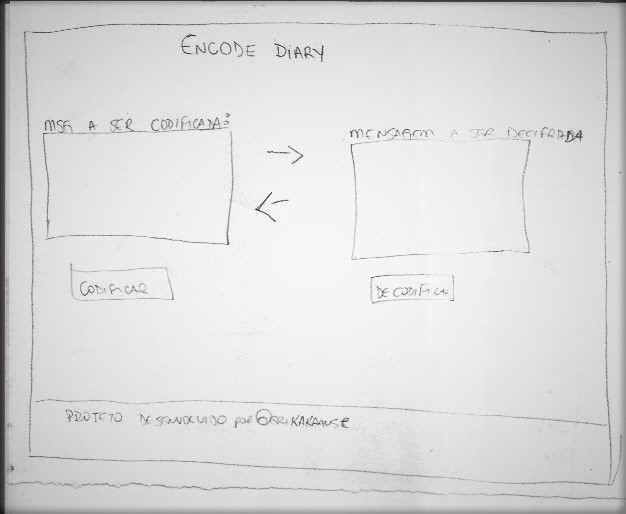 ENCODE DIARY
MSG A SER CODIFICADA:
MENSAGEM A SER DECIFRADA
CODIFICAR
DECODIFICAR
PROJETO DESENVOLVIDO POR